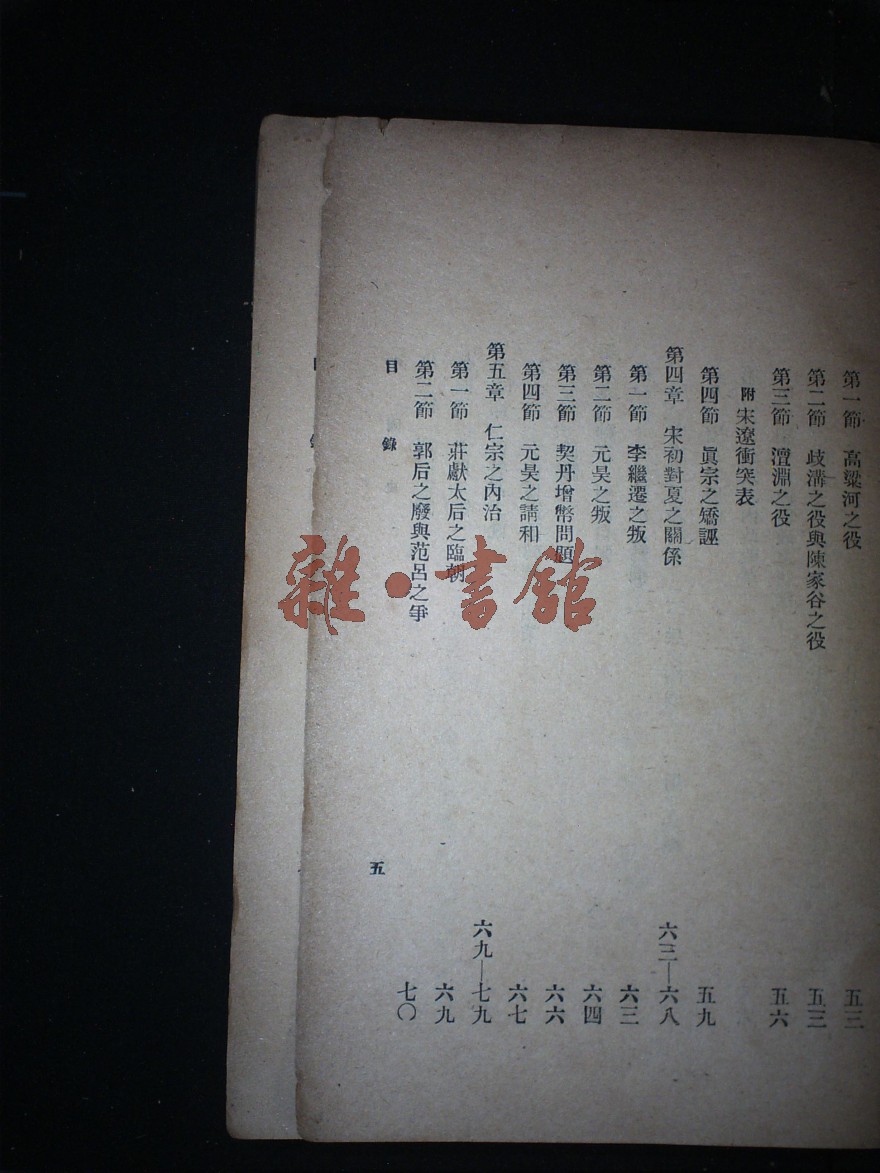 第一節　高粱河之役　五三
第二節　歧溝之役與陳家谷之役　五三
第三節　澶淵之役　五六
附 宋遼衝突表
第四節　眞宗之矯誣　五九
第四章　宋初對夏之關係　六三—六八
第一節　李繼遷之叛　六三
第二節　元昊之叛　六四
第三節　契丹增幣問題　六六
第四節　元昊之請和　六七
第五章　仁宗之內治　六九—七九
第一節　莊獻太后之臨朝　六九
第二節　郭后之廢與范呂之爭　七〇
目錄　五
雜·書館